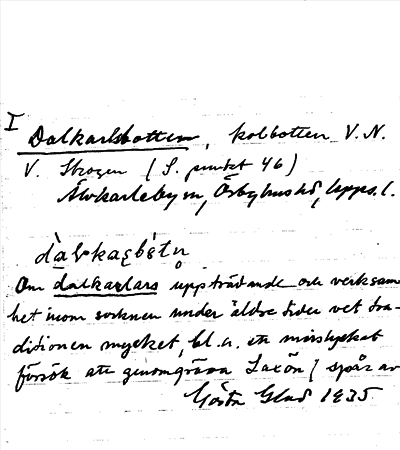 I
Dalkarlsbotten, kolbotten V.N.
V. Skogen (S. punkt 46)
Älvkarleby sn, Örbyhus hd, Upps. l.
Om dalkarlars uppträdande och verksam
het inom socknen under äldre tider vet tra-
ditionen mycket, bl.a. ett misslyckat
försök att genomgräva Laxön (spår av
Gösta Glad 1935